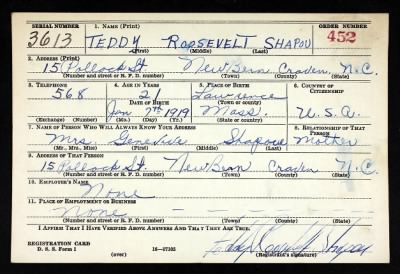 SERIAL NUMBER 1. NAME (Print) ORDER NUMBER
3613 TEDDY ROOSEVELT SHAPOU 452
(First) (Middle) (Last)
2. ADDRESS (Print)
15 Pollock St New Bern Craven N.C.
(Number and street or R. F. D. number) (Town) (County) (State)
3. TELEPHONE 4. AGE IN YEARS 5. PLACE OF BIRTH 6. COUNTRY OF CITIZENSHIP
568 21 Lawrence
DATE OF BIRTH (Town or county)
Jan 7th 1919 Mass. U.S.A.
(Exchange) (Number) (Mo.) (Day) (Yr.) (State or country)
7. NAME OF PERSON WHO WILL ALWAYS KNOW YOUR ADDRESS 8. RELATIONSHIP OF THAT PERSON
Mrs. Shapou Mother
(Mr., Mrs., Miss) (First) (Middle) (Last)
9. ADDRESS OF THAT PERSON
15 Pollock St New Bern Craven N.C.
(Number and street or R. F. D. number) (Town) (County) (State)
10. EMPLOYER'S NAME
None
11. PLACE OF EMPLOYMENT OR BUSINESS
None
(Number and street or R. F. D. number) (Town) (County) (State)
I AFFIRM THAT I HAVE VERIFIED ABOVE ANSWERS AND THAT THEY ARE TRUE.
REGISTRATION CARD Teddy Roosevelt Shapou
D. S. S. Form 1 16—17105 (Registrant's signature)